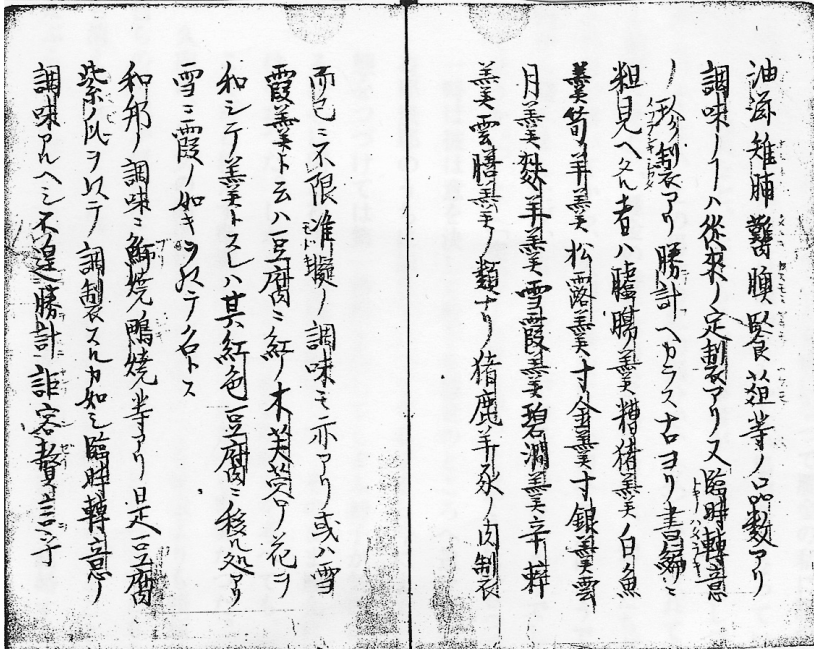 調味ノヿハ從來ノ定製アリ又臨時轉意
ノ珍製アリ勝計ヘカラスナロヨリ書編ニ
粗見ヘタル者ハ臨膓羹糟猪羹ノ白魚
羹笋羊羹松露羹寸金羹寸銀羹雲
月羹麩羊羹雪霞羹碧澗羹辛
羹雲膳羹ノ類ナリ猪鹿羊豕ノ肉製
而已ニ不限准擬ノ調味モ亦アリ或ハ雪
霞羹ト云ハ豆腐ニ紅ノ木芙蓉ノ花ヲ
和シテ羹トスレハ其紅色豆腐ニ移ル処アリ
雪ニ霞ノ如キヲ以テ名トス
和邦ノ調味ニ鰤焼鴫焼等アリ是豆腐
ヲ以テ調製スルカ如シ臨時轉意ノ
調味アルヘシ不遑勝計詎容贅言乎